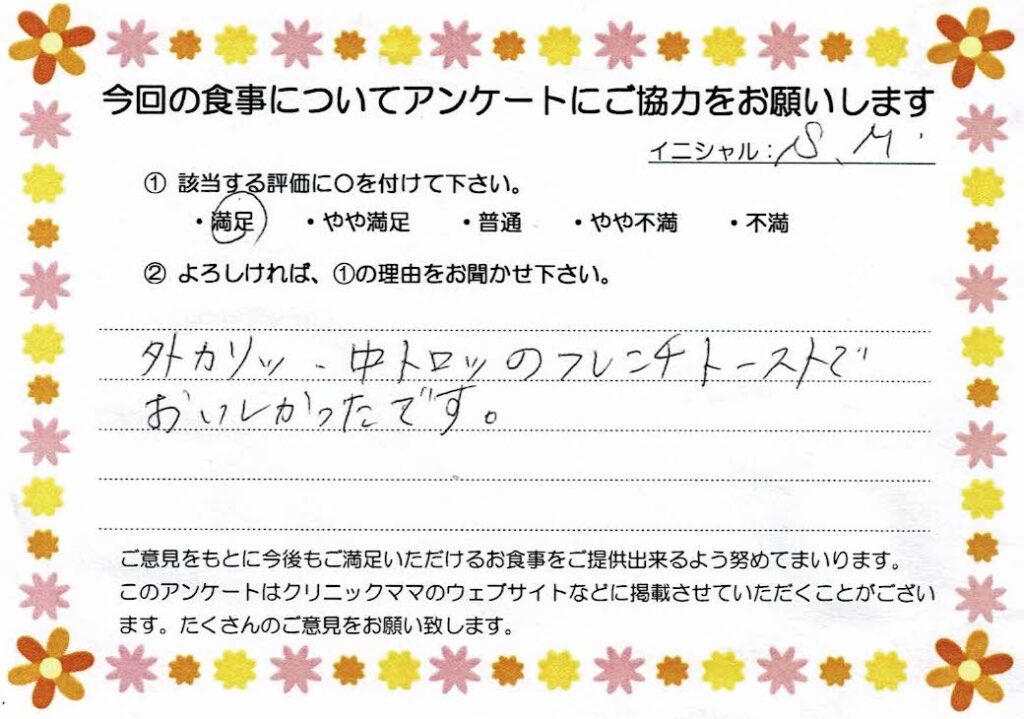 今回の食事についてアンケートにご協力をお願いします
イニシャル：S、M
① 該当する評価に○を付けて下さい。
・満足 ・やや満足 ・普通 ・やや不満 ・不満
② よろしければ、①の理由をお聞かせ下さい。
外カリッ、中トロッのフレンチトーストで
おいしかったです。
ご意見をもとに今後もご満足いただけるお食事をご提供出来るよう努めてまいります。
このアンケートはクリニックママのウェブサイトなどに掲載させていただくことがござい
ます。たくさんのご意見をお願い致します。